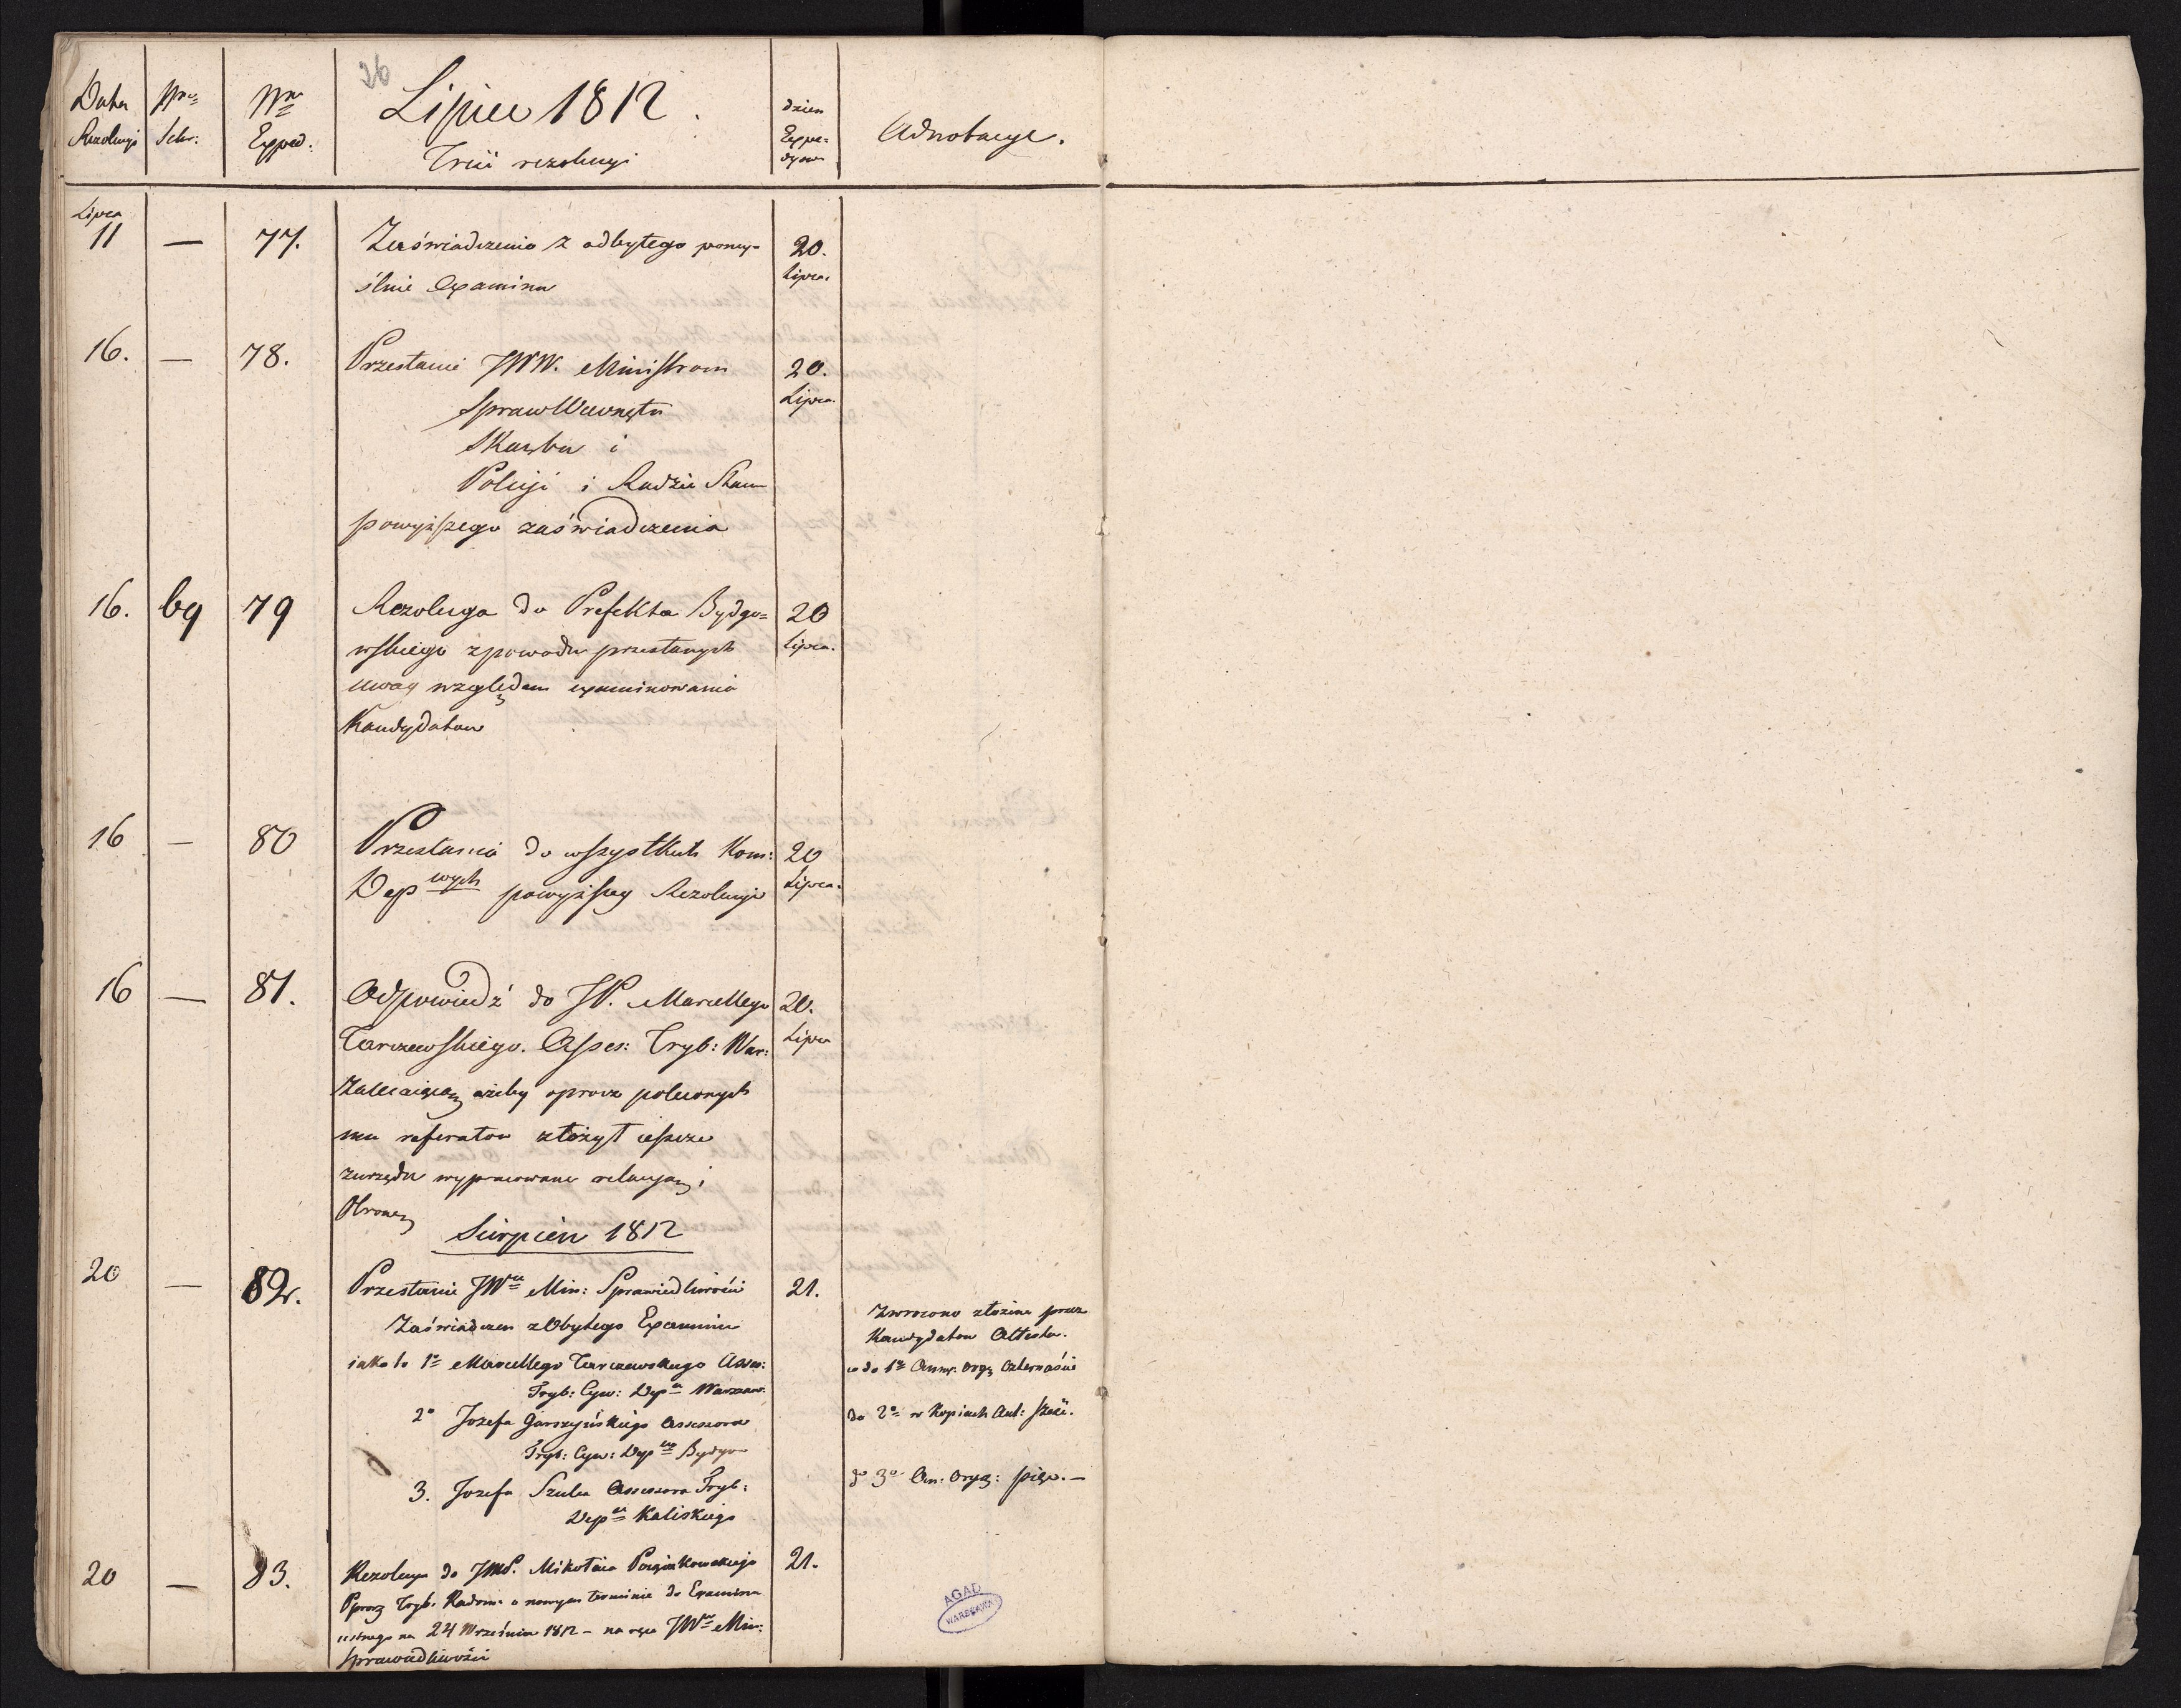 26
Data
Rezolucyi
Nro
Sekr:
Nro
Exped:
Lipiec 1812.
Treść rezolucyi
dzien
Expe=
dycyi
Adnotacye.
Lipca
11 — 77. Zaświadczenia z odbytego pomy= 20.
ślnie Examinu Lipca.
16. — 78. Przesłanie JWW. Ministrom 20.
Spraw Wewnętrz Lipca.
Skarbu i
Policyi i Radzie Stanu
powyższego zaświadczenia
16. 69 79 Rezolucya do Prefekta Bydgo= 20
wskiego z powodu przesłanych Lipca.
uwag względem examinowania
Kandydatow
16 — 80 Przesłania do wszystkich Kom: 20
Dep wych powyższey Rezolucyi Lipca.
16 — 81. Odpowiedź do JP. Marcellego 20.
Tarczewskiego. Asses: Tryb: War: Lipca
Zalecaiącą ażeby oprocz poleconych
mu referatow złożył ieszcze
zurzędu wypracowane relacyą i
Sierpień 1812
20 — 82. Przesłanie JWu Min: Sprawiedliwości 21.
Zaświadczen z Obytego Examinu
iako to 1o Marcellego Tarczewskiego Asses:
Tryb: Cyw: Depu Warszaw.
2o Jozefa Garszyńskiego Assessora
Tryb: Cyw: Depu Bydgo
3. Jozefa Szulca Assessora Tryb:
Depu Kaliskiego
Zwrocono złożone przez
Kandydatow Attesta.
co do 1o Ann. oryg czternaście
do 2o w Kopiach Aut: sześć.
do 3o An: oryg: pięć. —
20 — 83. Rezolucya do JMP. Mikołaia 21.
Pprocz Tryb. Radom: o nowym terminie do Examinu
ustnego na 24 Września 1812 – na ręce JWu Min:
Sprawiedliwości
AGAD
WARSZAWA